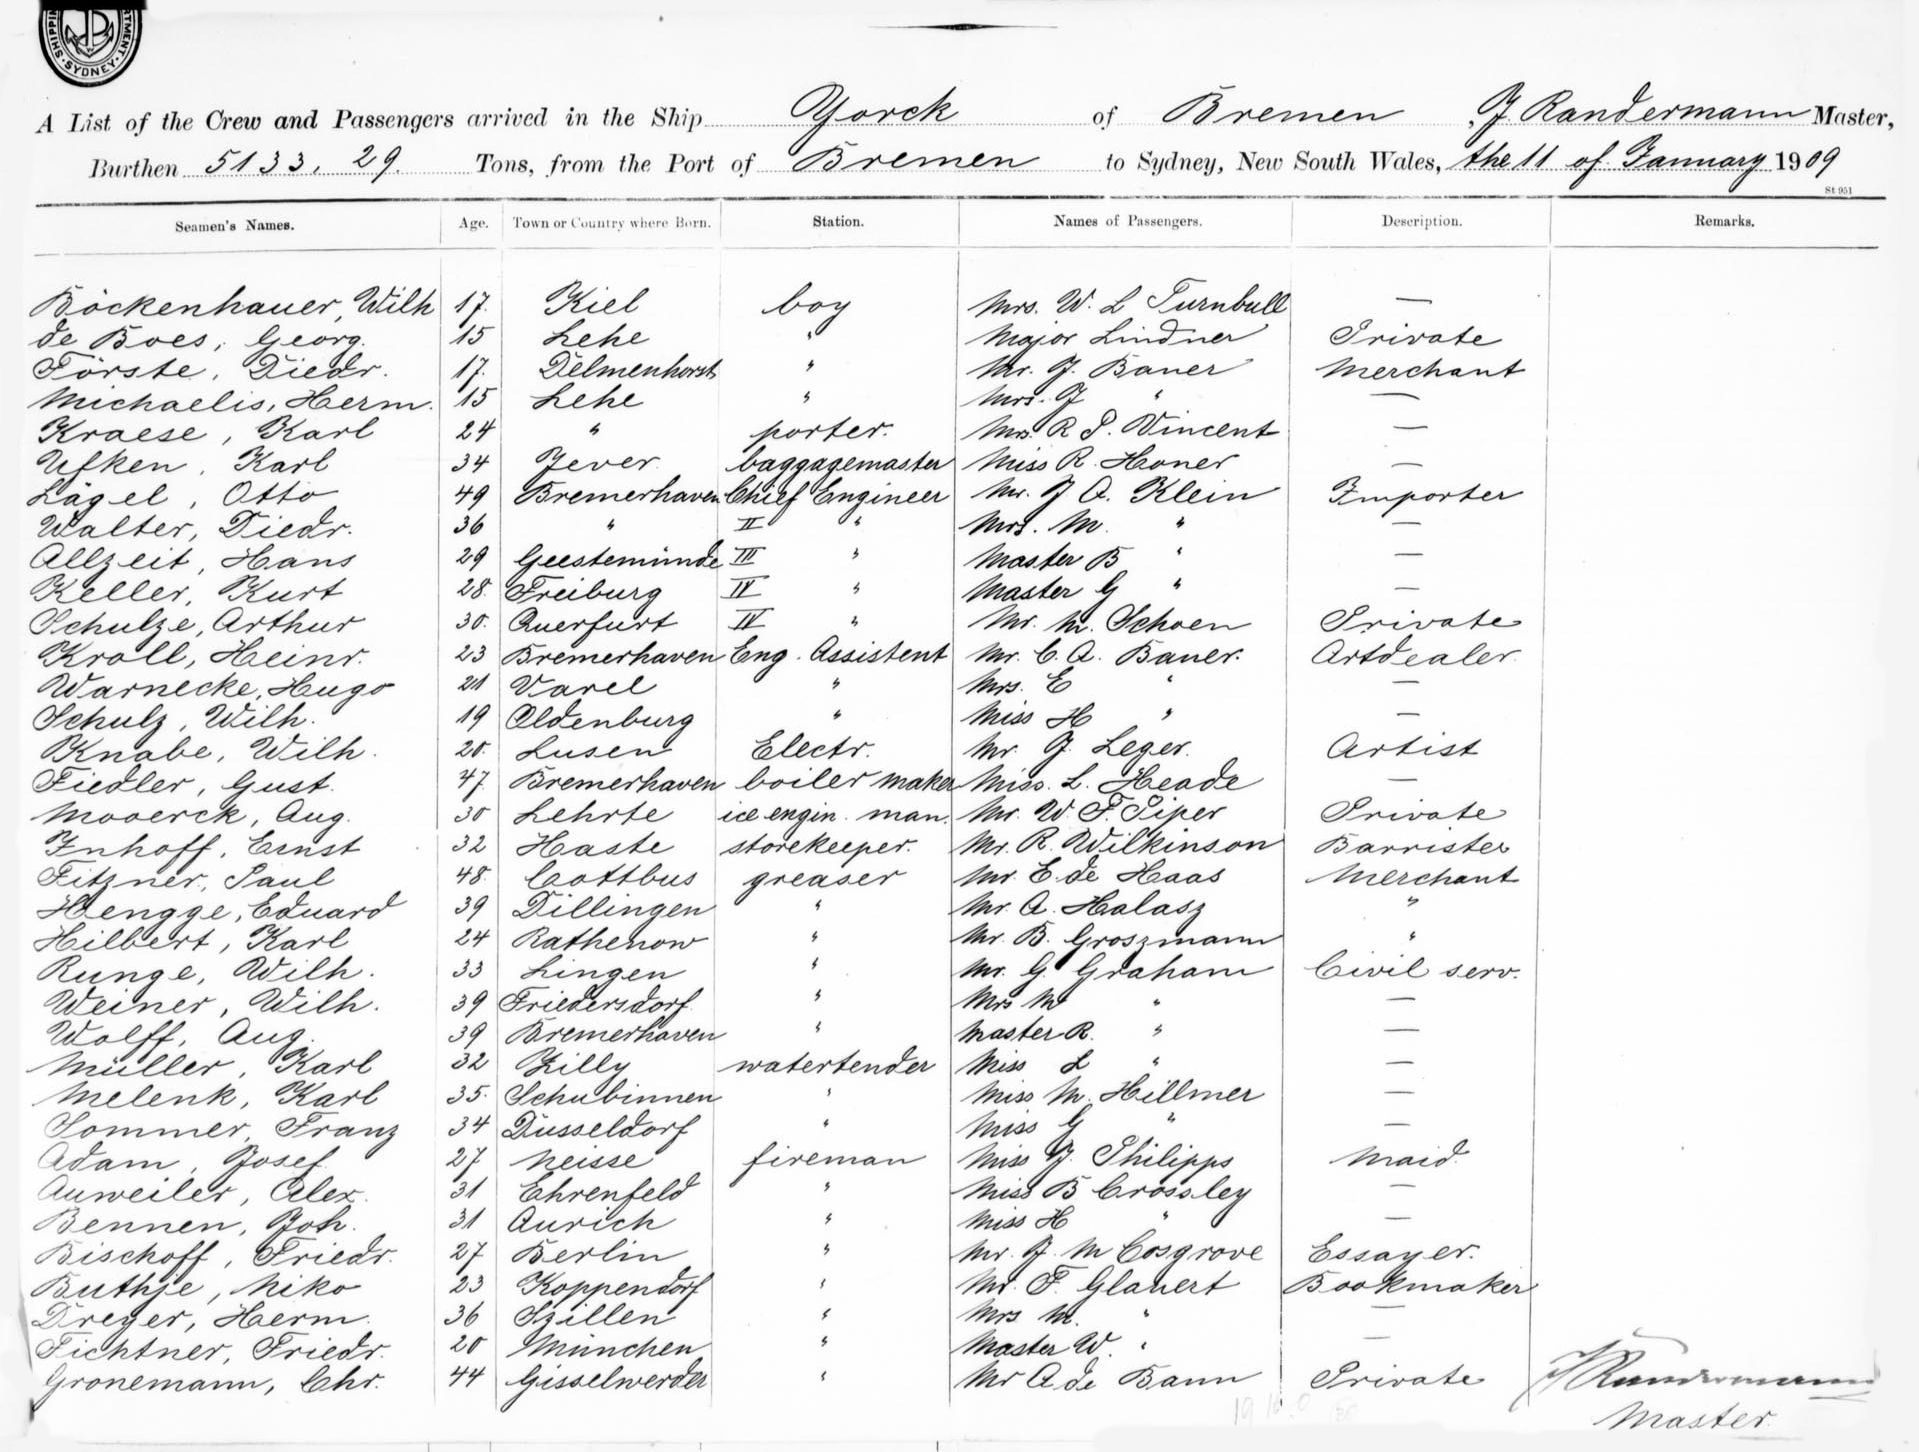 SHIPPING DEPARTMENT SYDNEY
A List of the Crew and Passengers arrived in the Ship Yorck of Bremen, J. Randermann Master,
Burthen 5133,29. Tons, from the Port of Bremen to Sydney, New South Wales, the 11 of January 1909
St 951
Seamen's Names. Age. Town or Country where Born. Station. Names of Passengers. Description. Remarks.
Böckenhauer, Wilh 17. Kiel boy Mrs. W. L Turnbull —
de Boes, Georg. 15 Lehe " Major Lindner Private
Förste, Diedr. 17. Delmenhorst " Mr. J. Bauer Merchant
Michaelis, Herm. 15 Lehe " Mrs. J " —
Kraese, Karl 24 " porter. Mrs. R P. Vincent —
Ufken, Karl 34 Jever baggagemaster Miss R. Honer —
Lägel, Otto 49 Bremerhaven Chief Engineer Mr. J A. Klein Importer
Walter, Diedr. 36 " II " Mrs. M. " —
Allzeit, Hans 29 Geestemünde III " Master B " —
Keller, Kurt 28. Freiburg IV " Master G " —
Schulze, Arthur 30. Querfurt IV " Mr. M. Schoen Private
Kroll, Heinr. 23 Bremerhaven Eng. Assistent Mr. C. A. Bauer. Artdealer.
Warnecke, Hugo 21 Varel " Mrs. E " —
Schulz, Wilh. 19 Oldenburg " Miss H " —
Knabe, Wilh. 20 Lusen Electr. Mr. J. Leger. Artist
Fiedler, Gust. 47. Bremerhaven boiler maker Miss. L. Heade —
Mooerck, Aug. 30 Lehrte ice engin. man. Mr. W. F. Piper Private
Inhoff, Ernst 32 Haste storekeeper. Mr. R. Wilkinson Barrister
Fitzner, Paul 48. Cottbus greaser Mr. E. de Haas Merchant
Hengge, Eduard 39 Dillingen " Mr. A. Halasz "
Hilbert, Karl 24 Rathenow " Mr. B. Groszmann "
Runge, Wilh. 33 Lingen " Mr. G. Graham Civil serv.
Weiner, Wilh. 39 Friedersdorf " Mrs M " —
Wolff, Aug. 39 Bremerhaven " Master R. " —
Müller, Karl 32 Zilly watertender Miss L " —
Melenk, Karl 35. Schubinnen " Miss M. Hillmer —
Sommer, Franz 34 Düsseldorf " Miss G " —
Adam, Josef 27 Neisse fireman Miss J. Philipps Maid.
Auweiler, Alex. 31 Ehrenfeld " Miss B Crossley —
Bennen, Joh. 31 Aurich " Miss H " —
Bischoff, Friedr. 27 Berlin " Mr. J. M Cosgrove Essayer.
Buthje, Niko 23 Koppendorf " Mr. F. Glauert Bookmaker
Dreyer, Herm. 36 Szillen " Mrs M. " —
Fichtner, Friedr. 20 München " Master W. " —
Gronemann, Chr. 44 Gisselwerder " Mr A de Bann Private J Randermann
Master.